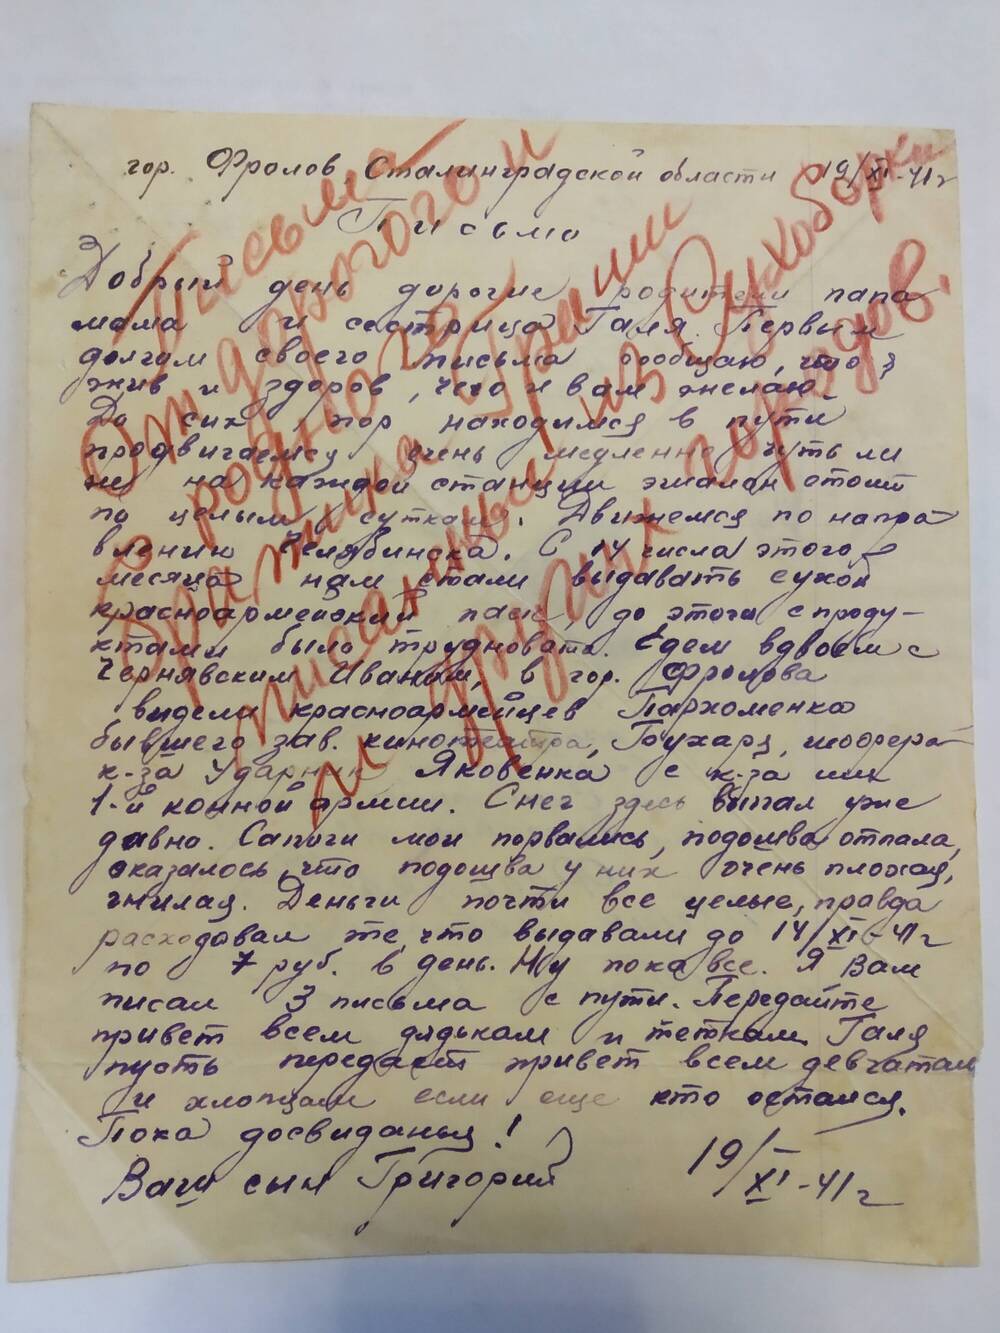 гор. Фролов Сталинградской области 19/XI-41г
Письмо
Добрый день дорогие родители папа
мама и сестрица Галя. Первым
долгом своего письма сообщаю, что я
жив и здоров, чего и вам желаю.
До сих пор находимся в пути
продвигаемся очень медленно чуть ли
не на каждой станции эшалон стоит
по целым суткам. Движемся по напра
влению Челябинска. С 14 числа этого
месяца нам стали выдавать сухой
красноармейский паек, до этого с проду-
ктами было трудновато. Едем вдвоем с
Чернявским Иваном, в гор. Фролова
видели красноармейцев Пархоменко
бывшего зав. кинотеатра, шофера
к-за Ударник Яковенка с к-за им
1-й конной армии. Снег здесь выпал уже
давно. Сапоги мои порвались, подошва отпала,
оказалось, что подошва у них очень плохая,
гнилая. Деньги почти все целые, правда
расходовал те, что выдавали до 14/XI-41г
по 7 руб. в день. Ну пока все. Я Вам
писал 3 письма с пути. Передайте
привет всем дядькам и теткам. Галя
пусть передаст привет всем девчатам
и хлопцам если еще кто остался.
Пока досвиданья!
Ваш сын Григорий 19/XI-41г
Письма
от дорогого и
родного
братика Гриши
писанные из Сухоборки
и других городов.